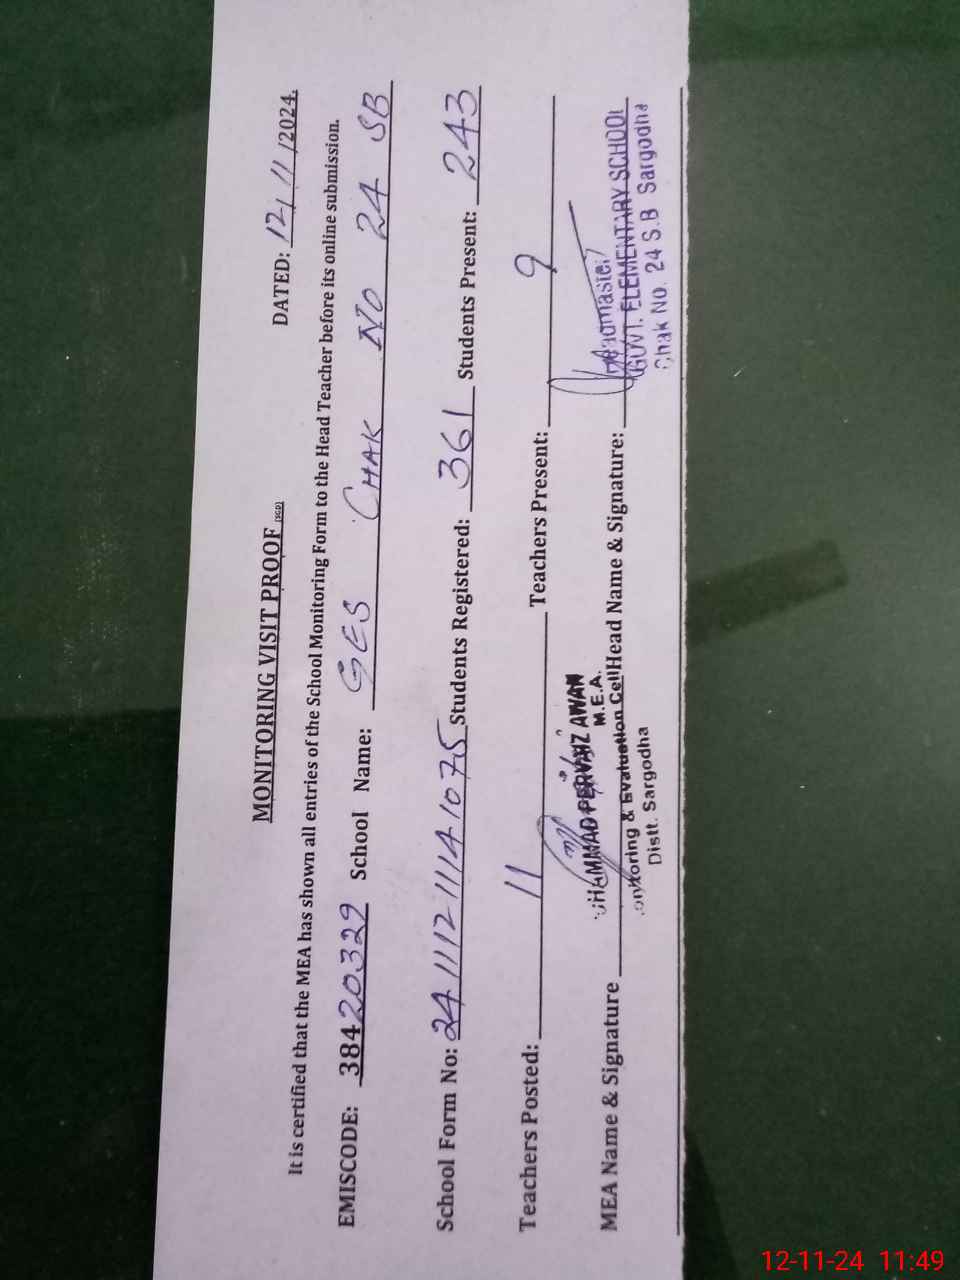 MONITORING VISIT PROOF (SGD)
DATED: 12/11/2024.
It is certified that the MEA has shown all entries of the School Monitoring Form to the Head Teacher before its online submission.
EMISCODE: 38420329 School Name: GES CHAK NO 24 SB
School Form No: 241112111141075 Students Registered: 361 Students Present: 243
Teachers Posted: 11 Teachers Present: 9
MEA Name & Signature Head Name & Signature:
HAMMAD PERVAIZ AWAN
M.E.A.
onitoring & Evaluation Cell
Distt. Sargodha
Headmaster
GOVT. ELEMENTARY SCHOOL
Chak No. 24 S.B Sargodha
12-11-24 11:49